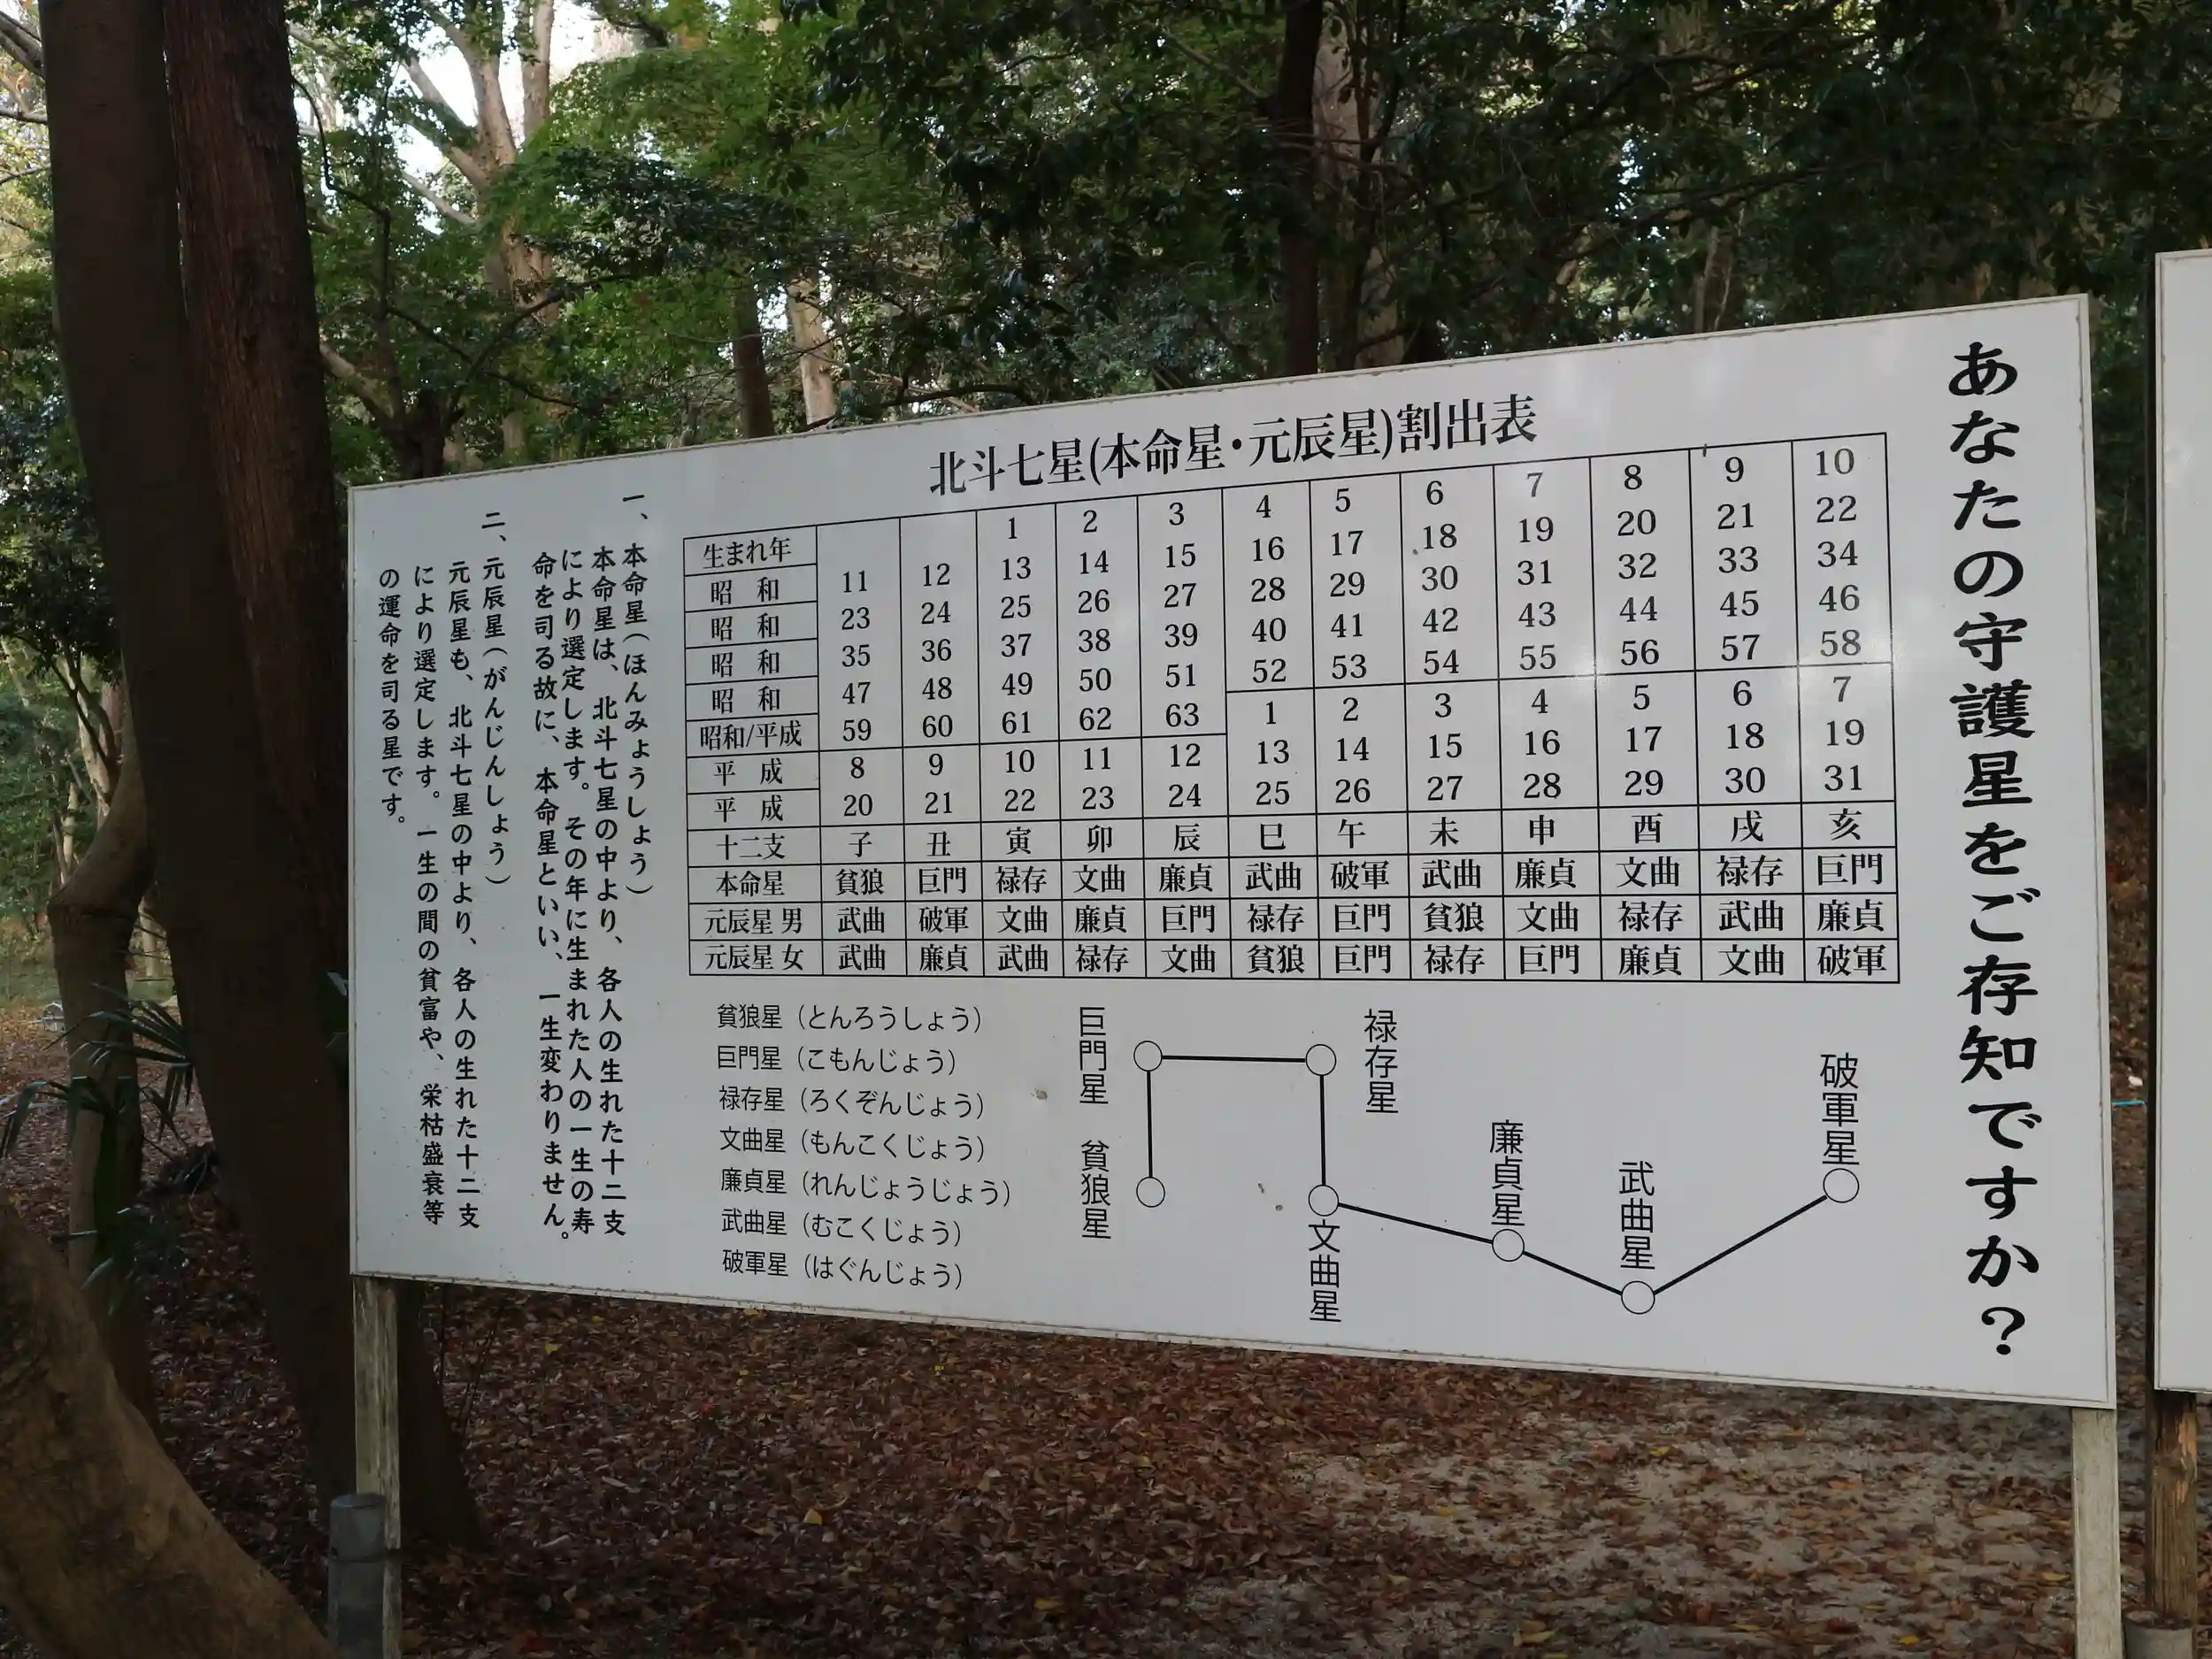 あなたの守護星をご存知ですか?
北斗七星(本命星・元辰星)割出表
生まれ年 1 2 3 4 5 6 7 8 9 10
昭 和 11 12 13 14 15 16 17 18 19 20 21 22
昭 和 23 24 25 26 27 28 29 30 31 32 33 34
昭 和 35 36 37 38 39 40 41 42 43 44 45 46
昭 和 47 48 49 50 51 52 53 54 55 56 57 58
昭和/平成 59 60 61 62 63 1 2 3 4 5 6 7
平 成 8 9 10 11 12 13 14 15 16 17 18 19
平 成 20 21 22 23 24 25 26 27 28 29 30 31
十二支 子 丑 寅 卯 辰 巳 午 未 申 酉 戌 亥
本命星 貧狼 巨門 禄存 文曲 廉貞 武曲 破軍 武曲 廉貞 文曲 禄存 巨門
元辰星 男 武曲 破軍 文曲 廉貞 巨門 禄存 巨門 貧狼 文曲 禄存 武曲 廉貞
元辰星 女 武曲 廉貞 武曲 禄存 文曲 貧狼 巨門 禄存 巨門 廉貞 文曲 破軍
貧狼星(とんろうしょう)
巨門星(こもんじょう)
禄存星(ろくぞんじょう)
文曲星(もんこくじょう)
廉貞星(れんじょうじょう)
武曲星(むこくじょう)
破軍星(はぐんじょう)
巨門星
貧狼星
禄存星
文曲星
廉貞星
武曲星
破軍星
一、本命星(ほんみょうしょう)
本命星は、北斗七星の中より、各人の生れた十二支
により選定します。その年に生まれた人の一生の寿
命を司る故に、本命星といい、一生変わりません。
二、元辰星(がんじんしょう)
元辰星も、北斗七星の中より、各人の生れた十二支
により選定します。一生の間の貧富や、栄枯盛衰等
の運命を司る星です。